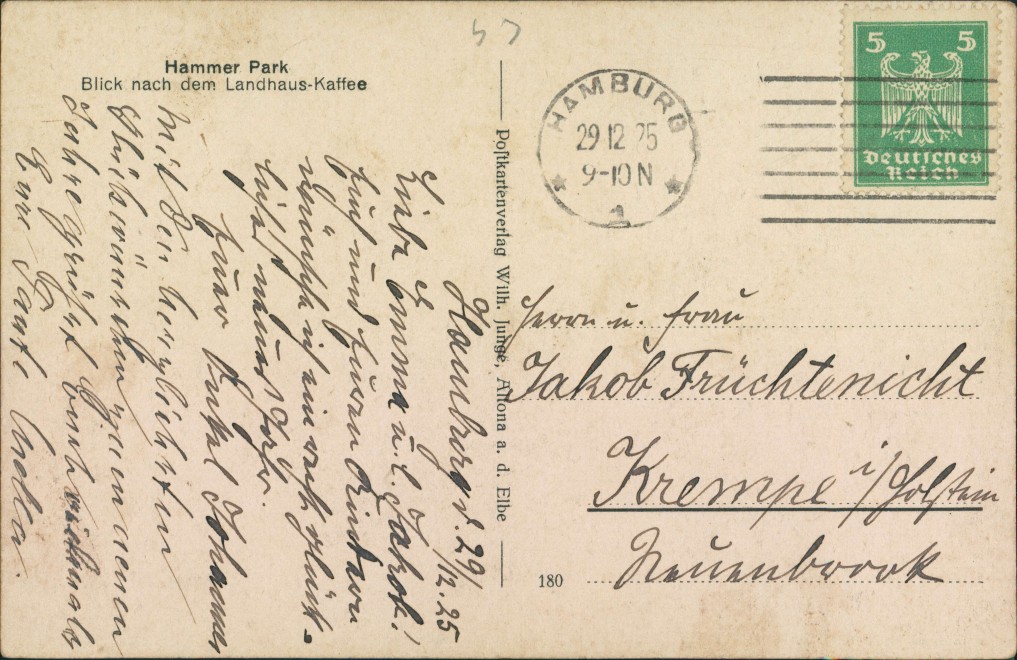 Hammer Park
Blick nach dem Landhaus-Kaffee
Hamburg d. 29/12.25
Liebe Emma u. l. Jakob!
Euch und Euren Kindern
wünsche ich ein recht glück-
liches neues Jahr.
Euer Onkel Johannes
Mit den herzlichsten
Glückwünschen zum neuen
Jahre grüßt Euch vielmals
Eure Tante
Postkartenverlag Wilh. Junge, Altona a. d. Elbe
180
HAMBURG
29 12 25
9-10 N
1
5 5
Deutsches
Reich
Herrn u. Frau
Jakob Früchtenicht
Krempe i/Holstein
Neuenbrook